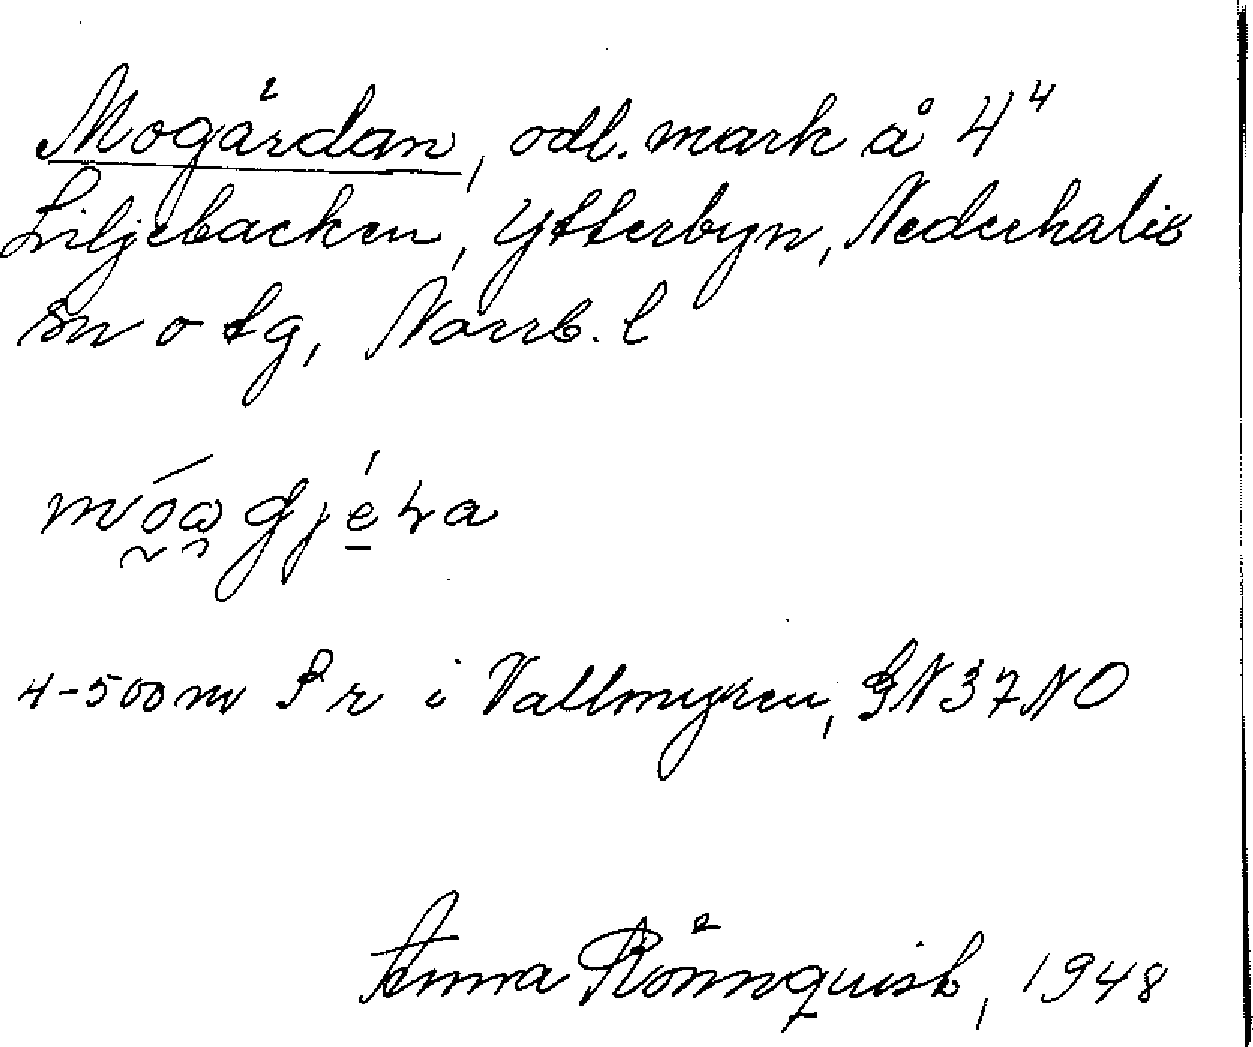 Mogärdan, odl. mark å 4⁴
Liljebacken, Ytterbyn, Nederkalix
sn o tg, Norrb. l
4-500 m i Vallmyren, NO
Anna Rönnquist, 1948